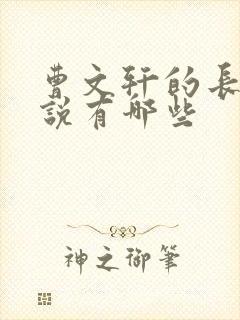 曹文轩的长
說有哪些
神之御筆